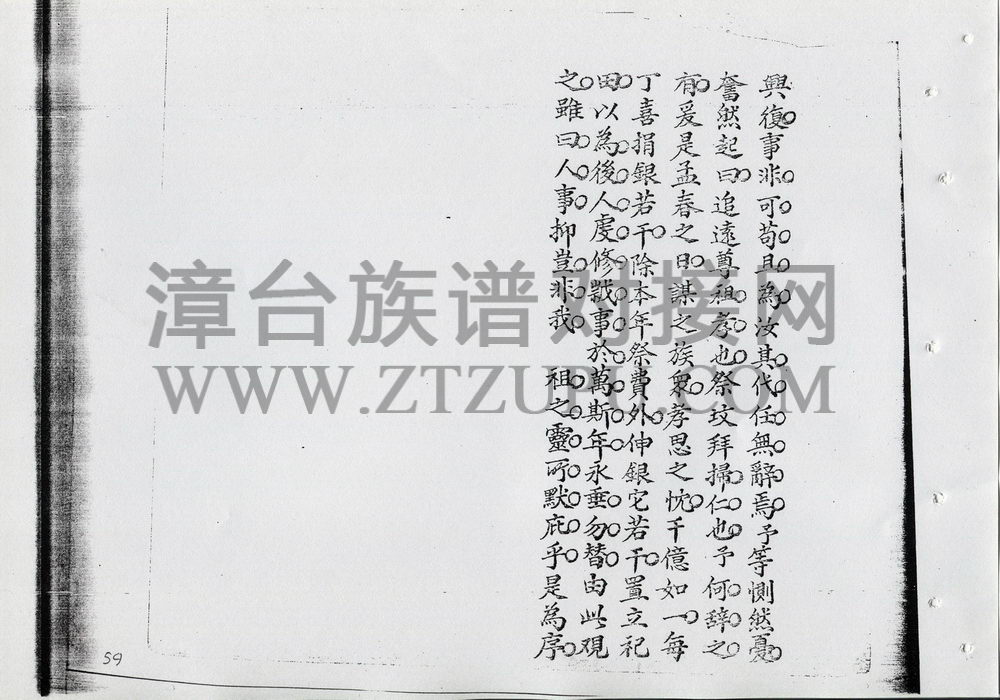 興復事非可苟且為汝其代任無辭焉予等惻然憂
奮然起曰追遠尊祖孝也祭坟拜掃仁也予何辞之
有爰是孟春之日謀之族衆孝思之忱千億如一每
丁喜捐銀若干除本年祭費外伸銀它若干置立祀
田以為後人虔修戩事於萬斯年永垂勿替由此观
之雖曰人事抑豈非我 祖之靈所默庇乎是為序
漳台族谱对接网
WWW.ZTZUPU.COM
59